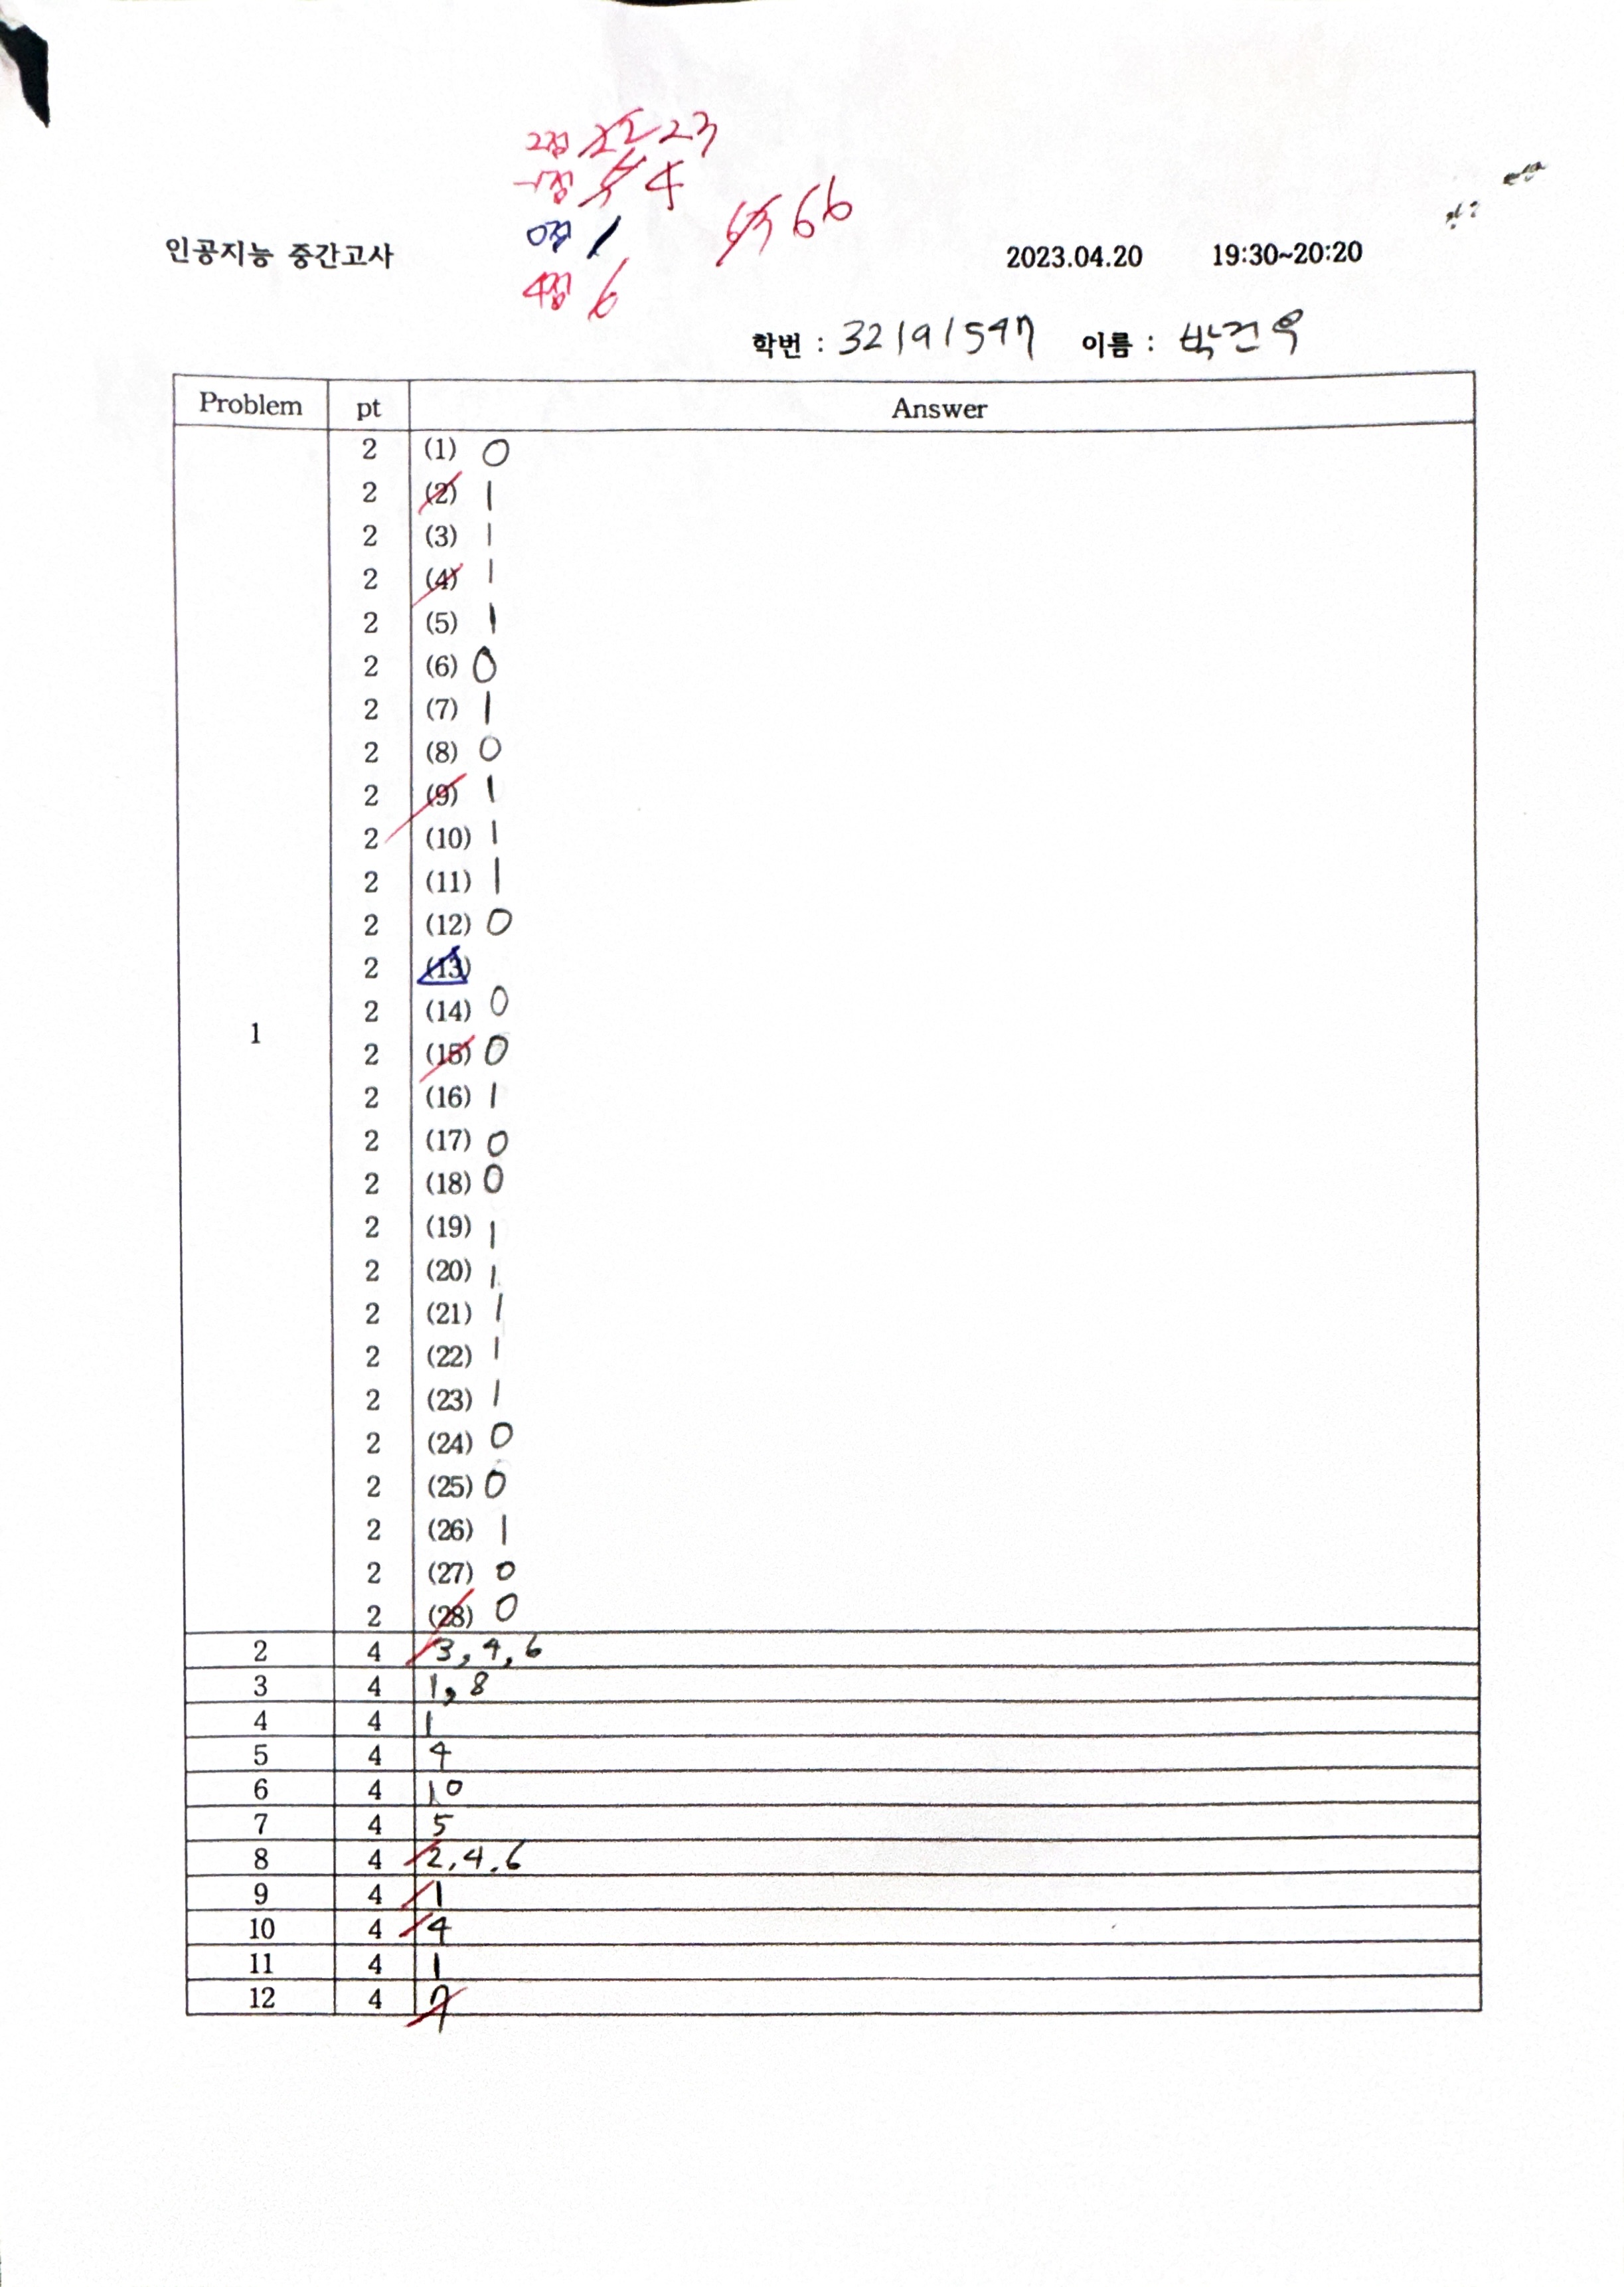 2점 22 23
-1점 5 4
0점 1
63 66
4점 6
인공지능 중간고사 2023.04.20 19:30~20:20
학번 : 32191597 이름 : 박건욱
Problem pt Answer
2 (1) 0
2 (2) 1
2 (3) 1
2 (4) 1
2 (5) 1
2 (6) 0
2 (7) 1
2 (8) 0
2 (9) 1
2 (10) 1
2 (11) 1
2 (12) 0
2 (13)
2 (14) 0
1
2 (15) 0
2 (16) 1
2 (17) 0
2 (18) 0
2 (19) 1
2 (20) 1
2 (21) 1
2 (22) 1
2 (23) 1
2 (24) 0
2 (25) 0
2 (26) 1
2 (27) 0
2 (28) 0
2 4 3, 4, 6
3 4 1, 8
4 4 1
5 4 4
6 4 10
7 4 5
8 4 2, 4, 6
9 4 1
10 4 4
11 4 1
12 4 7